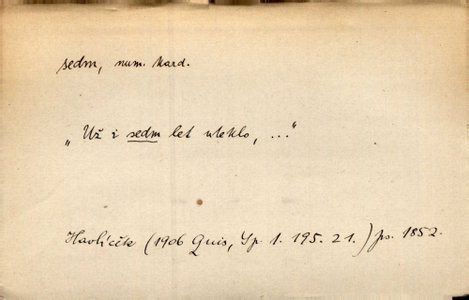 sedm, num. kard.
„Už i sedm let uteklo, ..."
Havlíček (1906 Quis, Sp. 1. 195. 21.) ps. 1852.